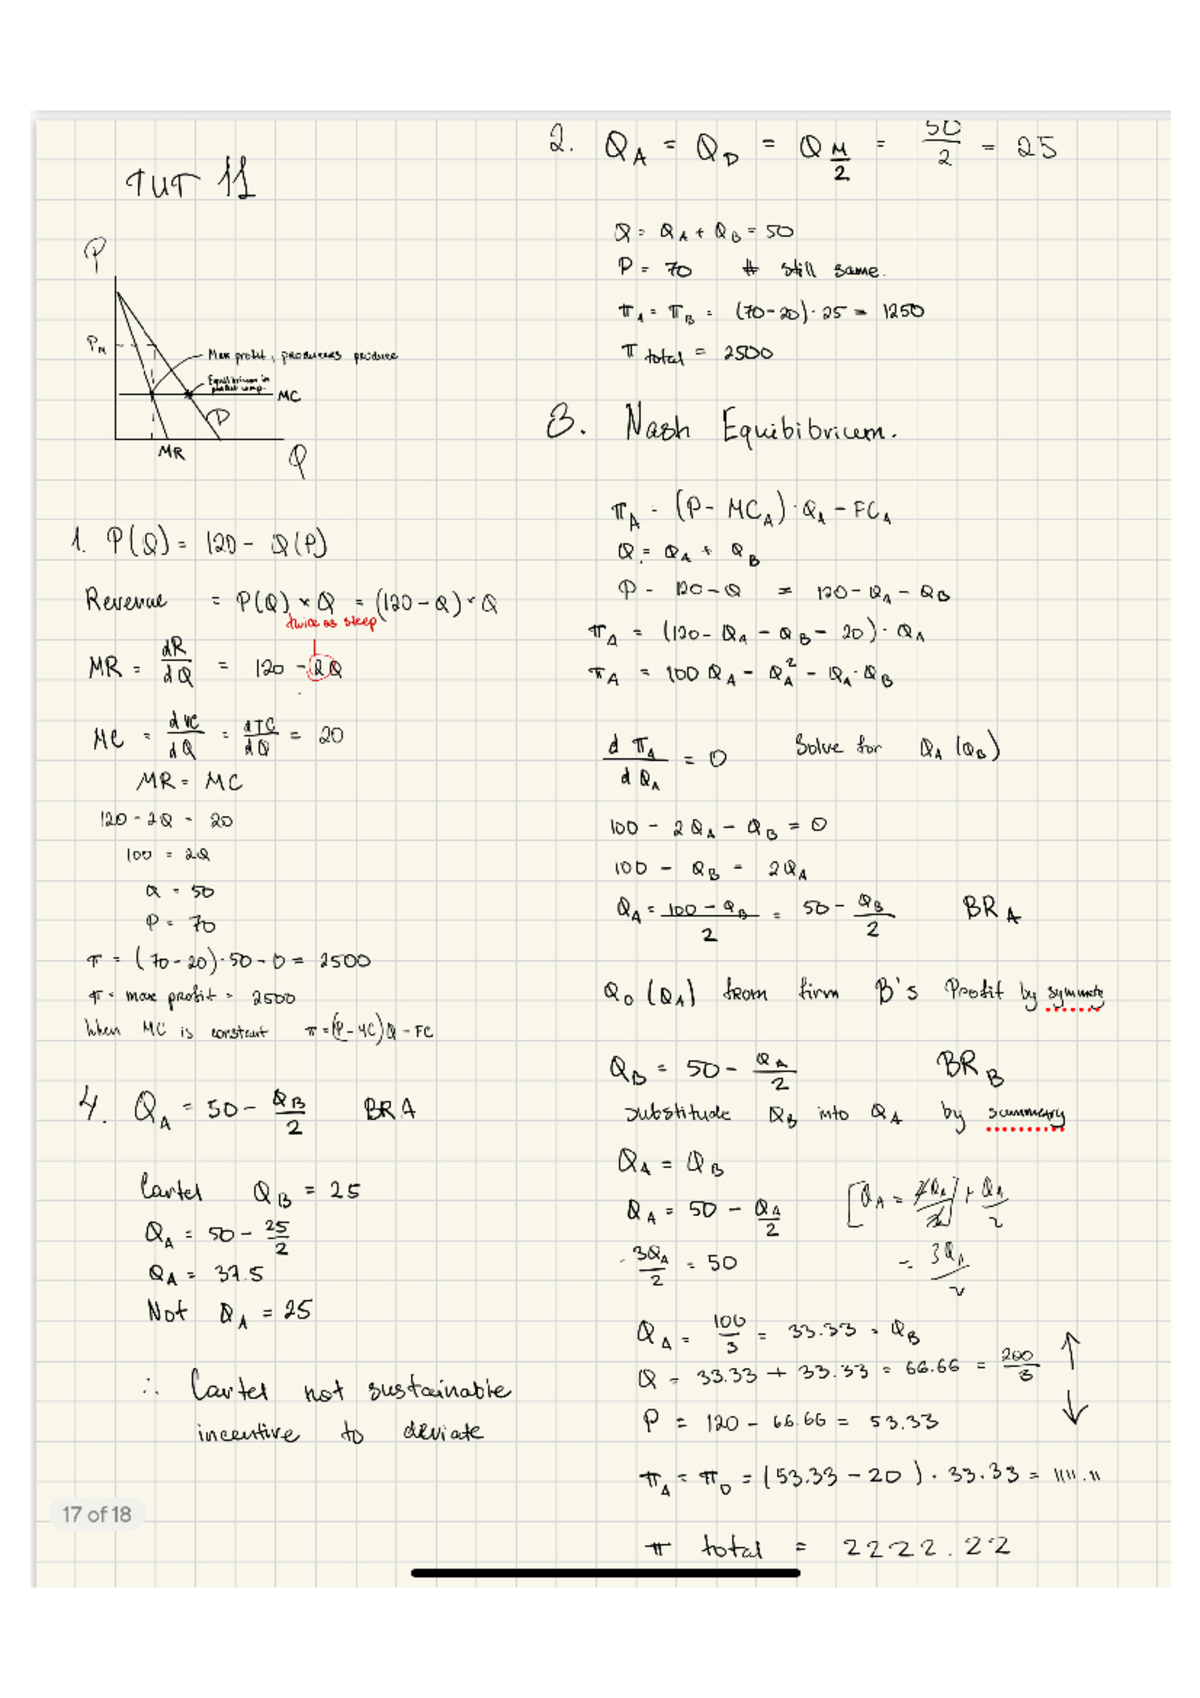 TUT 11
P
P_M
Max profit, producers produce
Equilibrium in perfect comp.
MC
D
MR
Q
1. P(Q) = 120 - Q(P)
Revenue = P(Q) × Q = (120 - Q) × Q
twice as steep
MR = dR/dQ = 120 - 2Q
MC = dVC/dQ = dTC/dQ = 20
MR = MC
120 - 2Q = 20
100 = 2Q
Q = 50
P = 70
π = (70-20)·50 - 0 = 2500
π = max profit = 2500
When MC is constant π = (P-MC)Q - FC
4. Q_A = 50 - Q_B/2 BRA
Cartel Q_B = 25
Q_A = 50 - 25/2
Q_A = 37.5
Not Q_A = 25
∴ Cartel not sustainable
incentive to deviate
17 of 18
2. Q_A = Q_D = Q_M/2 = 50/2 = 25
Q = Q_A + Q_B = 50
P = 70 # still same.
π_A = π_B = (70-20)·25 = 1250
π total = 2500
3. Nash Equibibrium.
π_A = (P - MC_A)·Q_A - FC_A
Q = Q_A + Q_B
P = 120 - Q = 120 - Q_A - Q_B
π_A = (120 - Q_A - Q_B - 20)·Q_A
π_A = 100 Q_A - Q_A² - Q_A·Q_B
dπ_A/dQ_A = 0 Solve for Q_A (Q_B)
100 - 2Q_A - Q_B = 0
100 - Q_B = 2Q_A
Q_A = 100 - Q_B/2 = 50 - Q_B/2 BR_A
Q_D (Q_A) from firm B's Profit by symmete
Q_B = 50 - Q_A/2 BR_B
substitude Q_B into Q_A by summetry
Q_A = Q_B
Q_A = 50 - Q_A/2
[Q_A = 2Q_A/2] + Q_A/2
3Q_A/2 = 50
= 3Q_A/2
Q_A = 100/3 = 33.33 = Q_B
Q = 33.33 + 33.33 = 66.66 = 200/3 ↑
P = 120 - 66.66 = 53.33 ↓
π_A = π_D = (53.33 - 20)·33.33 = 1111.11
π total = 2222.22